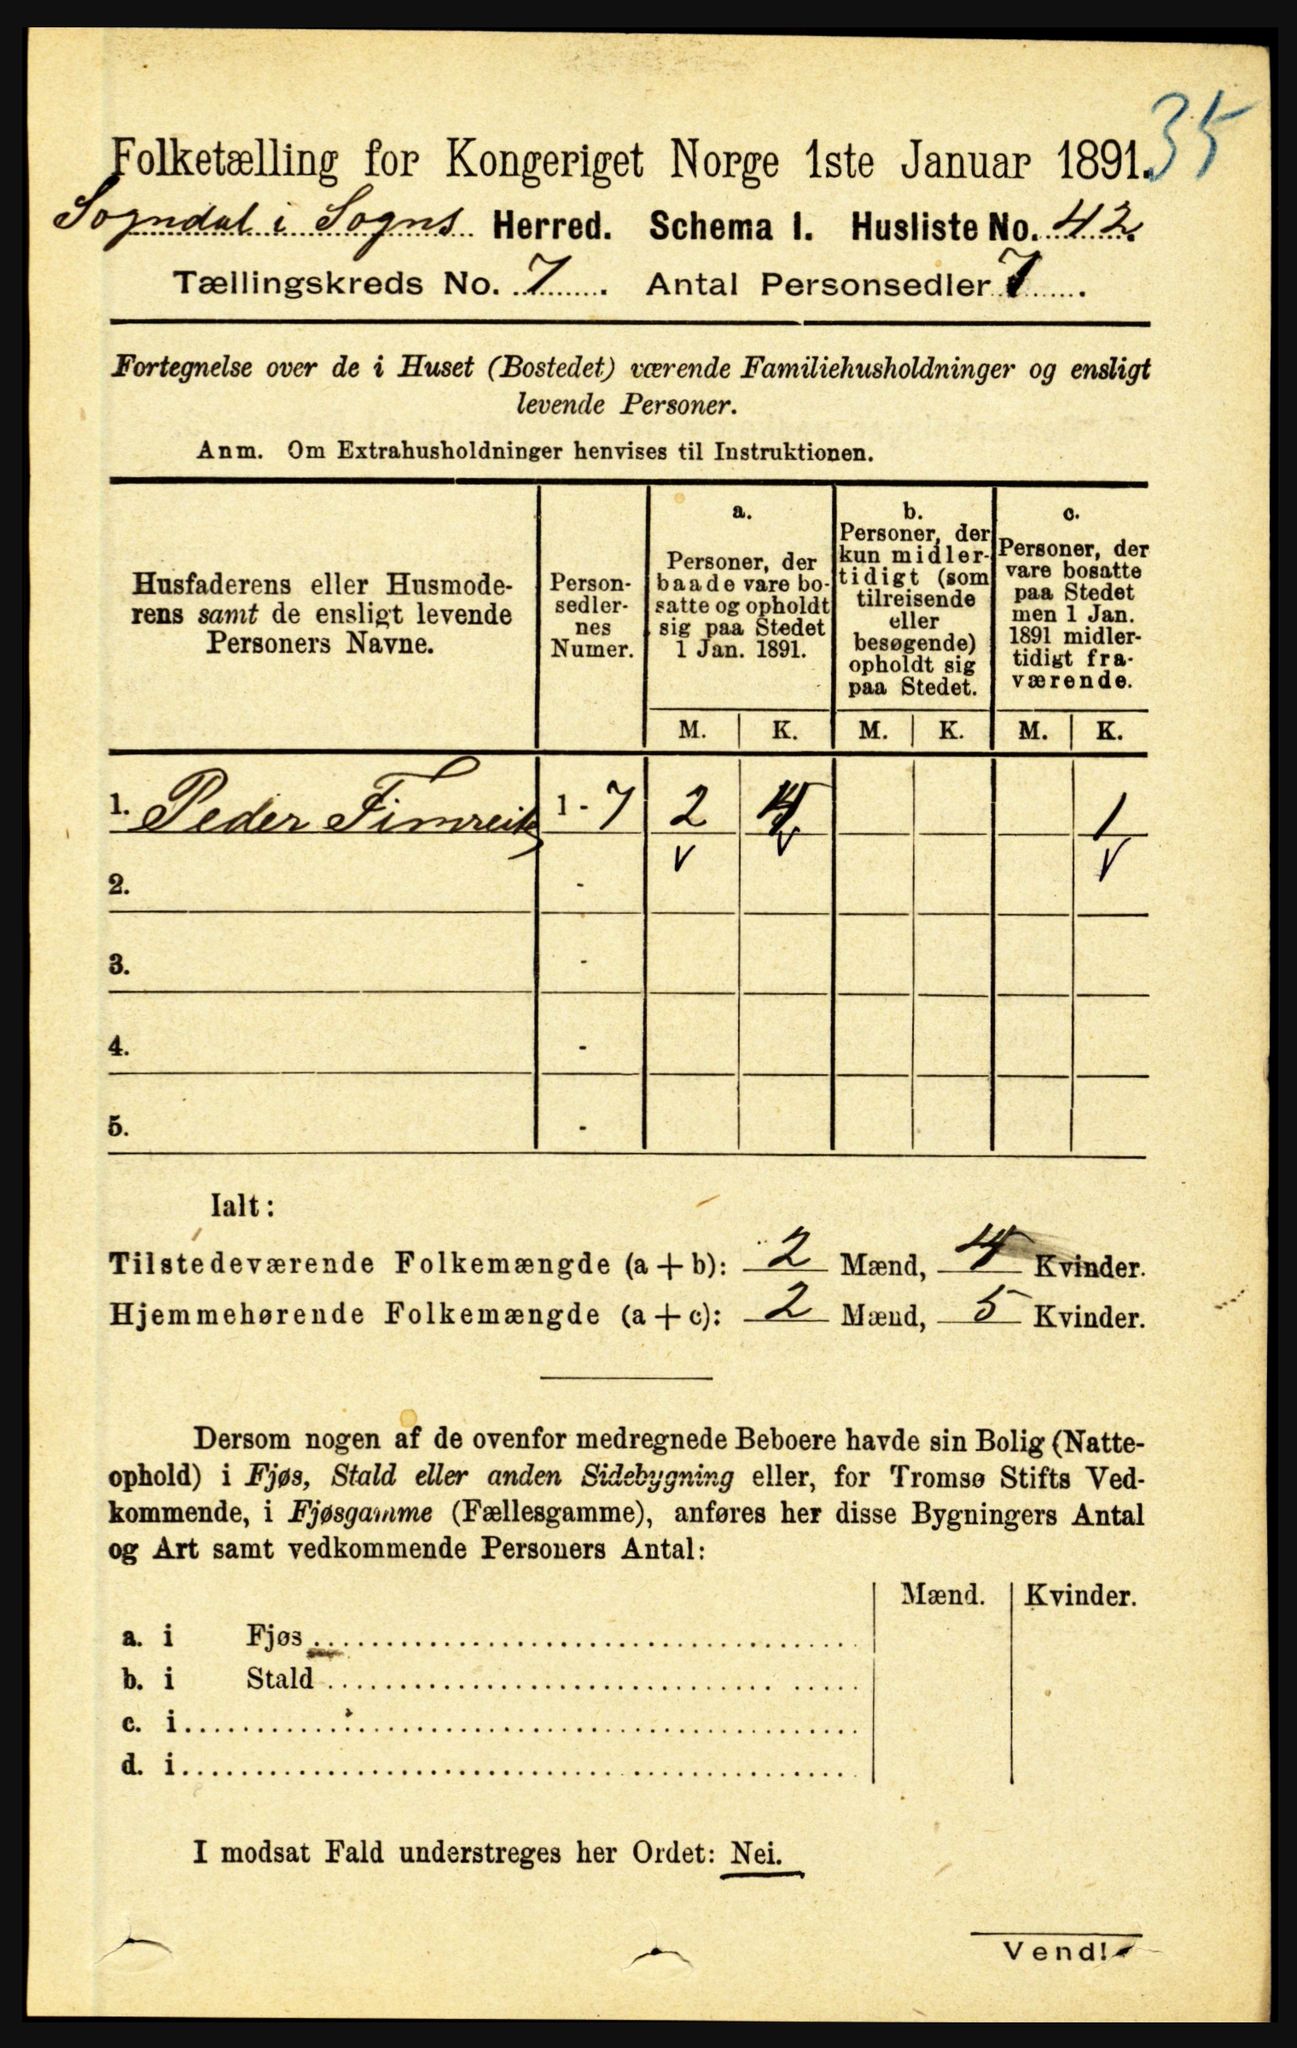 35
Folketælling for Kongeriget Norge 1ste Januar 1891.
Sogndal i Sogns Herred. Schema I. Husliste No. 42.
Tællingskreds No. 7. Antal Personsedler 7.
Fortegnelse over de i Huset (Bostedet) værende Familiehusholdninger og ensligt
levende Personer.
Anm. Om Extrahusholdninger henvises til Instruktionen.
Husfaderens eller Husmode-
rens samt de ensligt levende
Personers Navne.
Person-
sedler-
nes
Numer.
a.
Personer, der
baade vare bo-
satte og opholdt
sig paa Stedet
1 Jan. 1891.
b.
Personer, der
kun midler-
tidigt (som
tilreisende
eller
besøgende)
opholdt sig
paa Stedet.
c.
Personer, der
vare bosatte
paa Stedet
men 1 Jan.
1891 midler-
tidigt fra-
værende.
M. K. M. K. M. K.
1. Peder Fimreite 1 - 7 2 4 1
v v v
2. -
3. -
4. -
5. -
Ialt:
Tilstedeværende Folkemængde (a + b): 2 Mænd, 4 Kvinder.
Hjemmehørende Folkemængde (a + c): 2 Mænd, 5 Kvinder.
Dersom nogen af de ovenfor medregnede Beboere havde sin Bolig (Natte-
ophold) i Fjøs, Stald eller anden Sidebygning eller, for Tromsø Stifts Ved-
kommende, i Fjøsgamme (Fællesgamme), anføres her disse Bygningers Antal
og Art samt vedkommende Personers Antal:
Mænd. Kvinder.
a. i Fjøs
b. i Stald
c. i
d. i
I modsat Fald understreges her Ordet: Nei.
Vend!